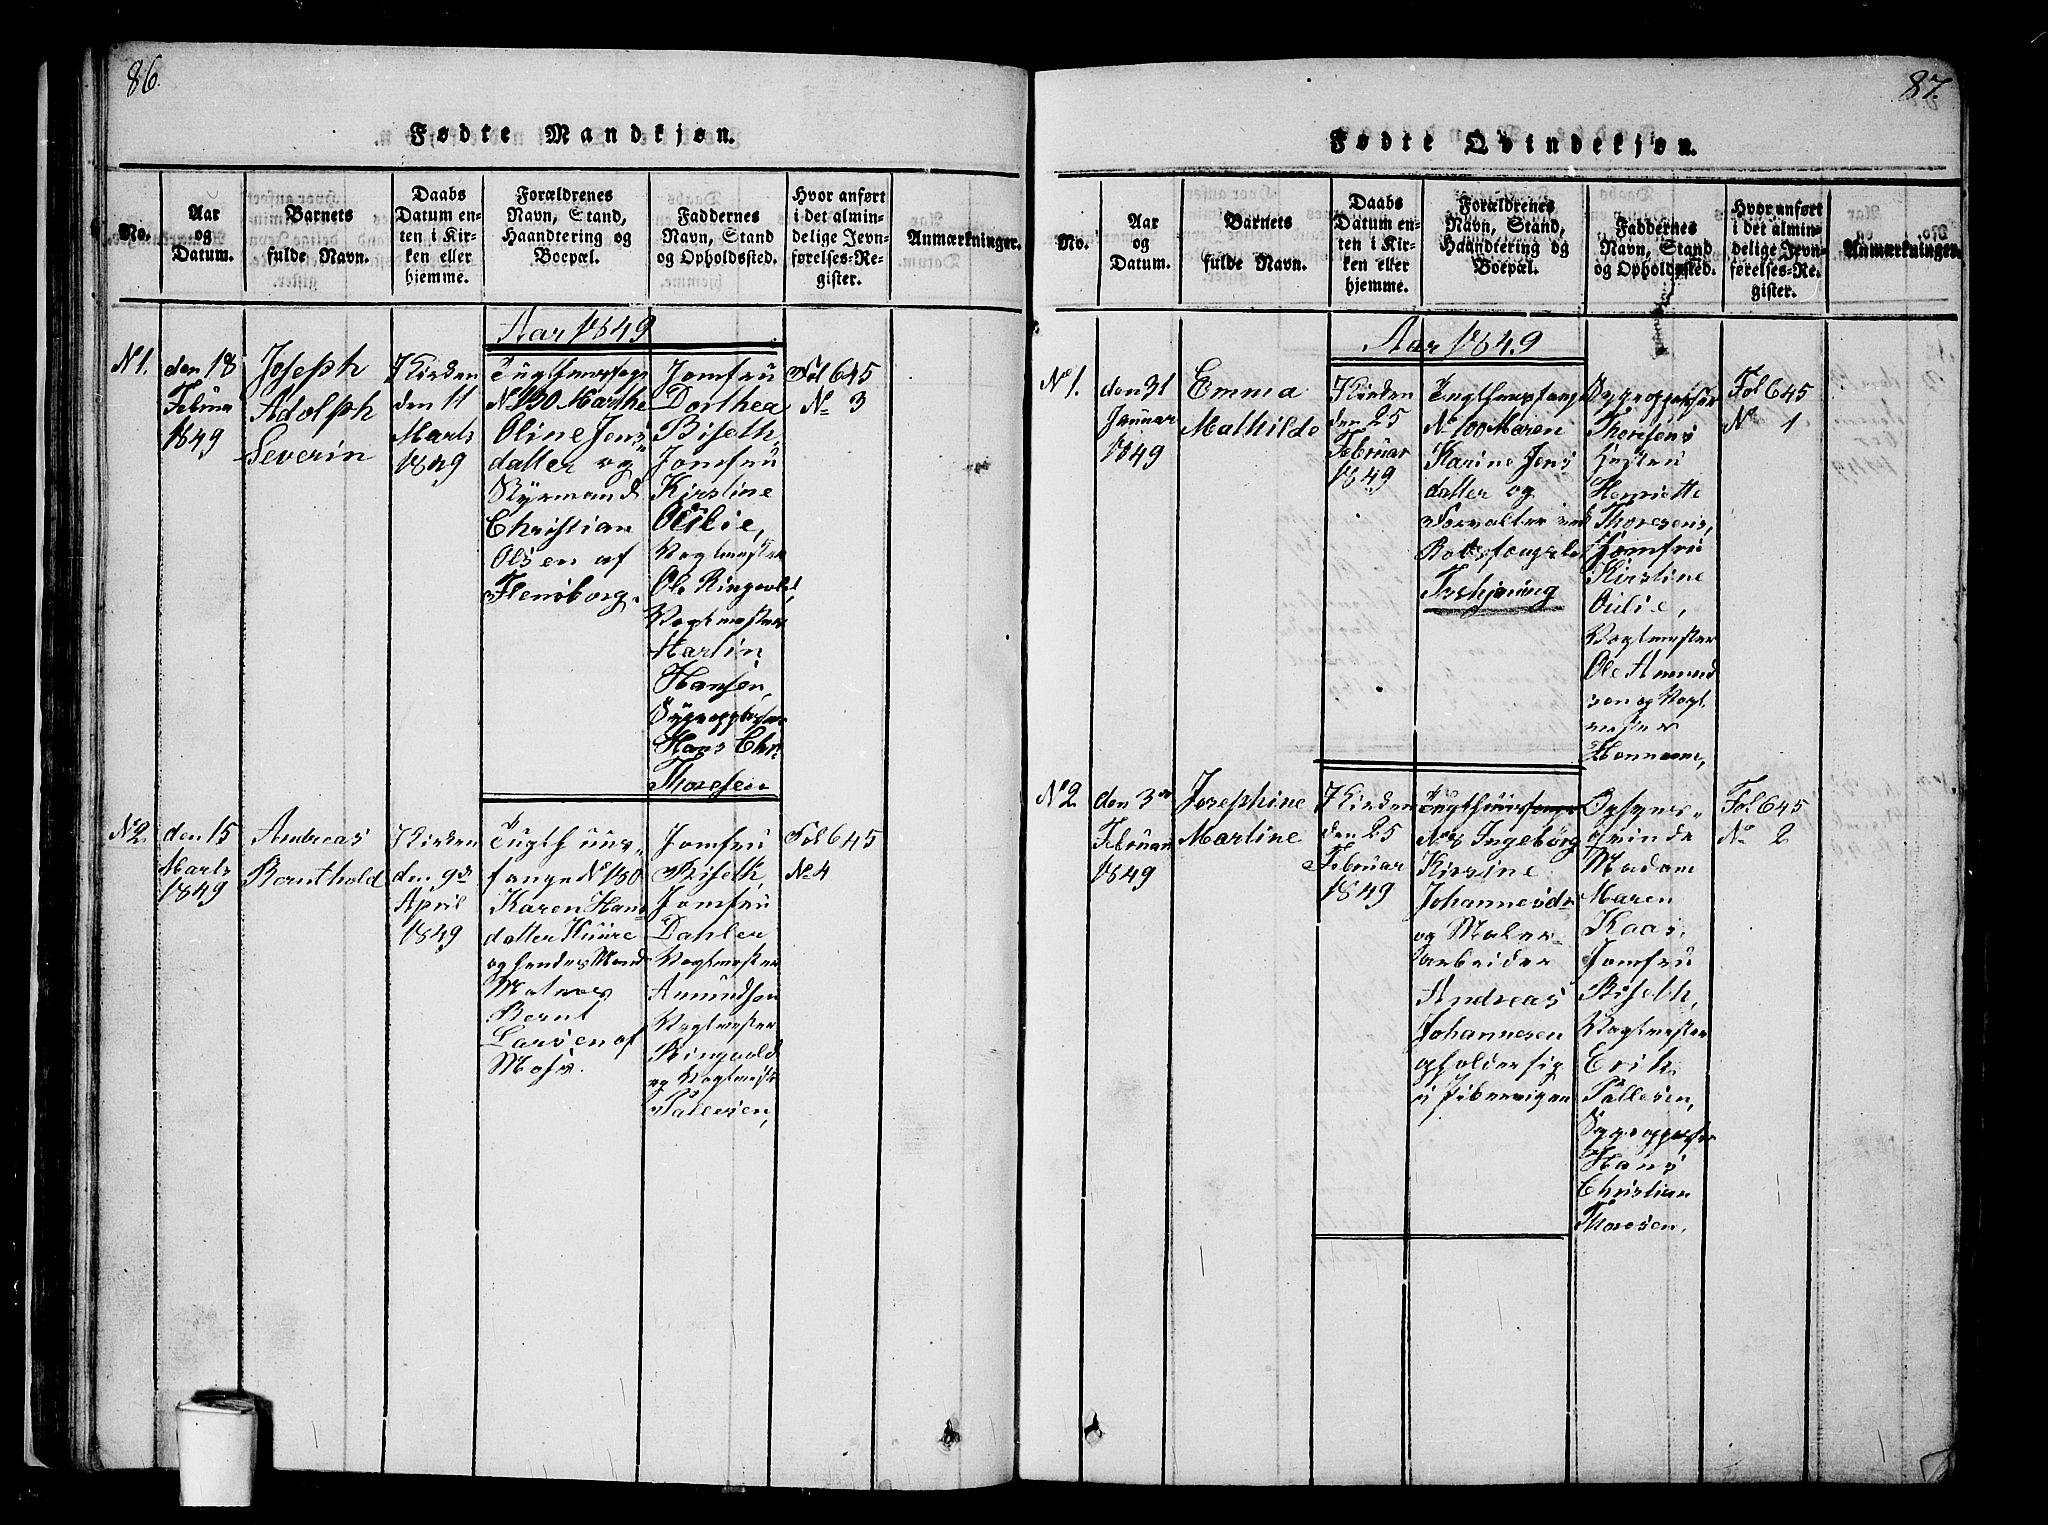 86.
Fødte Mandkjøn.
No.
Aar
og
Datum.
Barnets
fulde Navn.
Daabs
Datum en-
ten i Kir-
ken eller
hjemme.
Forældrenes
Navn, Stand,
Haandtering og
Boepæl.
Faddernes
Navn, Stand
og Opholdssted.
Hvor anført
i det almin-
delige Jevn-
førelses-Re-
gister.
Anmærkninger.
Aar 1849
N1.
den 18
Februa
1849
Joseph
Adolph
Severin
I Kirken
den 11
Marts
1849
Tugthusfange
N 130 Marthe
Oline Jens
datter og
Styrmand
Christian
Olsen af
Flensborg.
Jomfru
Dorthea
Biseth,
Jomfru
Kirstine
Outie,
Vagtmester
Ole Ringvold,
Vagtmester
Martin
Hansen,
Sygeoppasser
Hans Chr.
Thoresen
Fol 645
No 3
No 2
den 15
Marts
1849
Andreas
Bernthold
I Kirken
den 9de
April
1849
Tugthuus-
fange N 180
Karen Hans
datter Kuure
og hendes Mand
Matros
Bernt
Larsen af
Moss.
Jomfru
Biseth,
Jomfru
Dahler
Vagtmester
Amundsen
Vagtmester
Ringvold
og Vagtmestr
Pallesen,
Fol 645
No 4
87.
Fødte Qvindekjøn.
No.
Aar
og
Datum.
Barnets
fulde Navn.
Daabs
Datum en-
ten i Kir-
ken eller
hjemme.
Forældrenes
Navn, Stand,
Haandtering og
Boepæl.
Faddernes
Navn, Stand
og Opholdssted.
Hvor anført
i det almin-
delige Jevn-
førelses-Re-
gister.
Anmærkninger.
Aar 1849
No 1.
den 31
Januar
1849
Emma
Mathilde
I Kirken
den 25
Februar
1849
Tugthusfange
No 100 Maren
Karine Jens
datter og
Forvalter ved
Bodsfængslet
Sygeoppasser
Thoresens
Hustru
Henriette
Thoresens,
Jomfru
Kirstine
Outie,
Vagtmester
Ole Amund
sen og Vagt
mester
Fol 645
No 1
No 2
den 3de
Februar
1849
Josephine
Martine
I Kirken
den 25
Februar
1849
Tugthuusfange
Ingeborg
Kirstine
Johannesdr
og Maler-
arbeider
Andreas
Johannesen
opholder sig
i Pibervigen
Opsyns-
qvinde
Madam
Maren
Kaas,
Jomfru
Biseth,
Vagtmester
Erik
Pallesen,
Sygeoppasser
Hans
Christian
Thoresen.
Fol 645
No 2